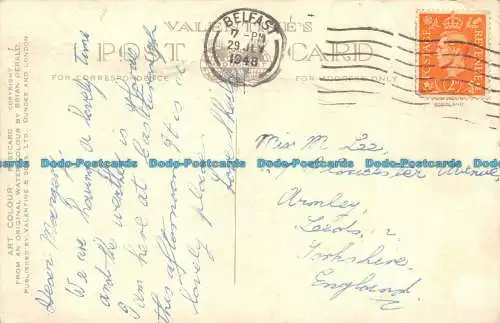 VALENTINE'S
POST CARD
FOR CORRESPONDENCE
FOR ADDRESS ONLY
BELFAST
7 - PM
29 JLY
1948
POSTAGE
REVENUE
2D
ART COLOUR POSTCARD COPYRIGHT
FROM AN ORIGINAL WATER COLOUR BY BRIAN GERALD
PUBLISHED BY VALENTINE & SONS, LTD., DUNDEE AND LONDON
Dear Margaret
We are having a lovely time
and the weather is fine
I am here at Castlerock
this afternoon. It is a
lovely place.
Love
Miss M. Lee,
Gloucester Avenue,
Armley,
Leeds,
Yorkshire,
England.
www.delcampe-postcards.com